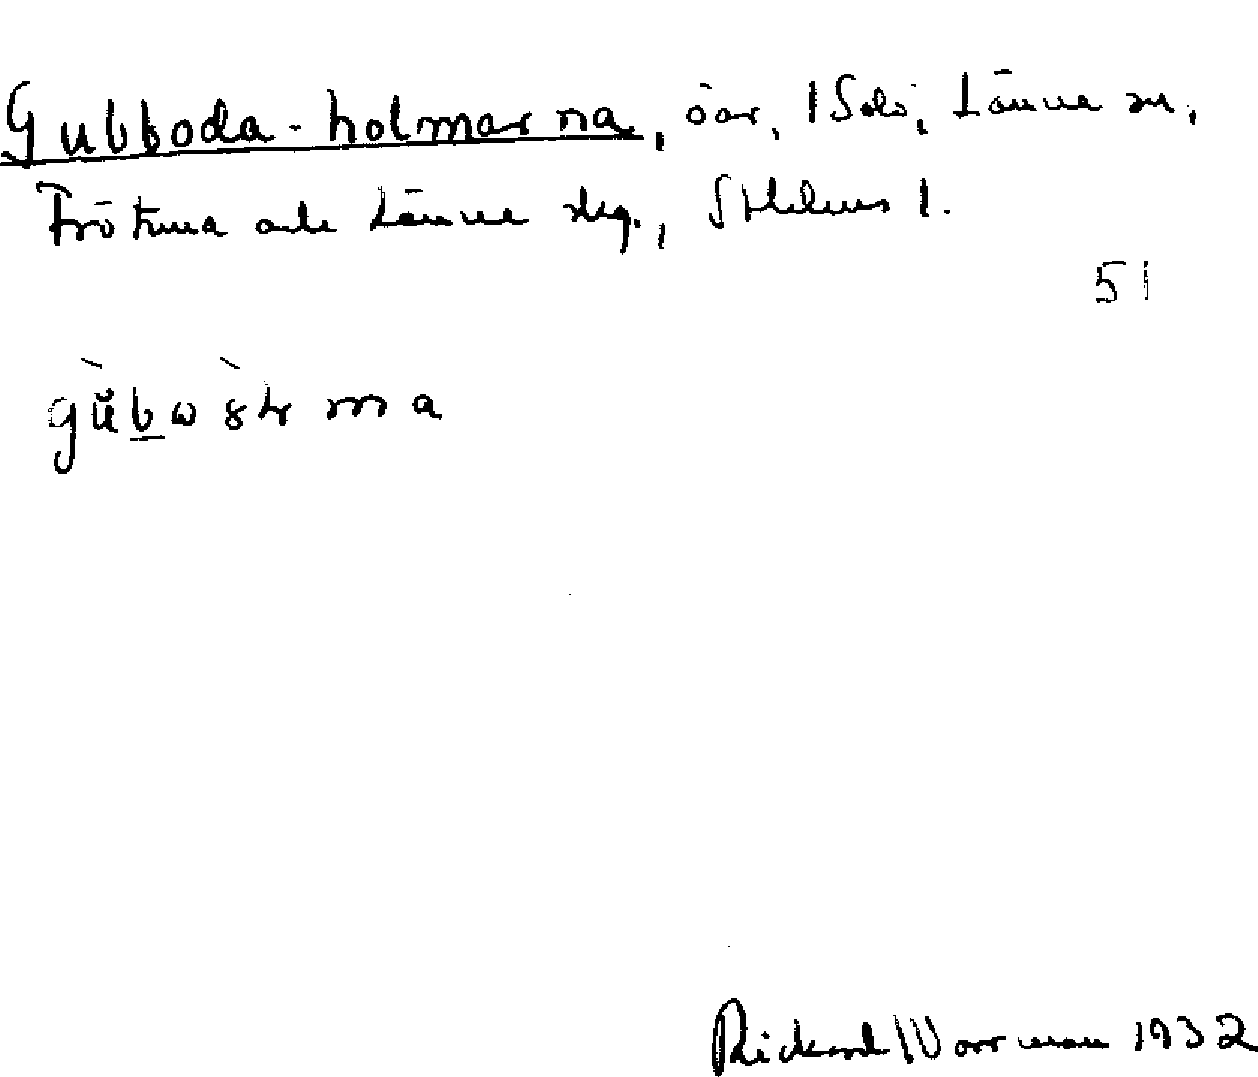 Gubboda-holmarna, öar, Isolö, Länna sn,
Frötuna och Länna skg., Sthlms l.
51
Rickard Norrman 1932